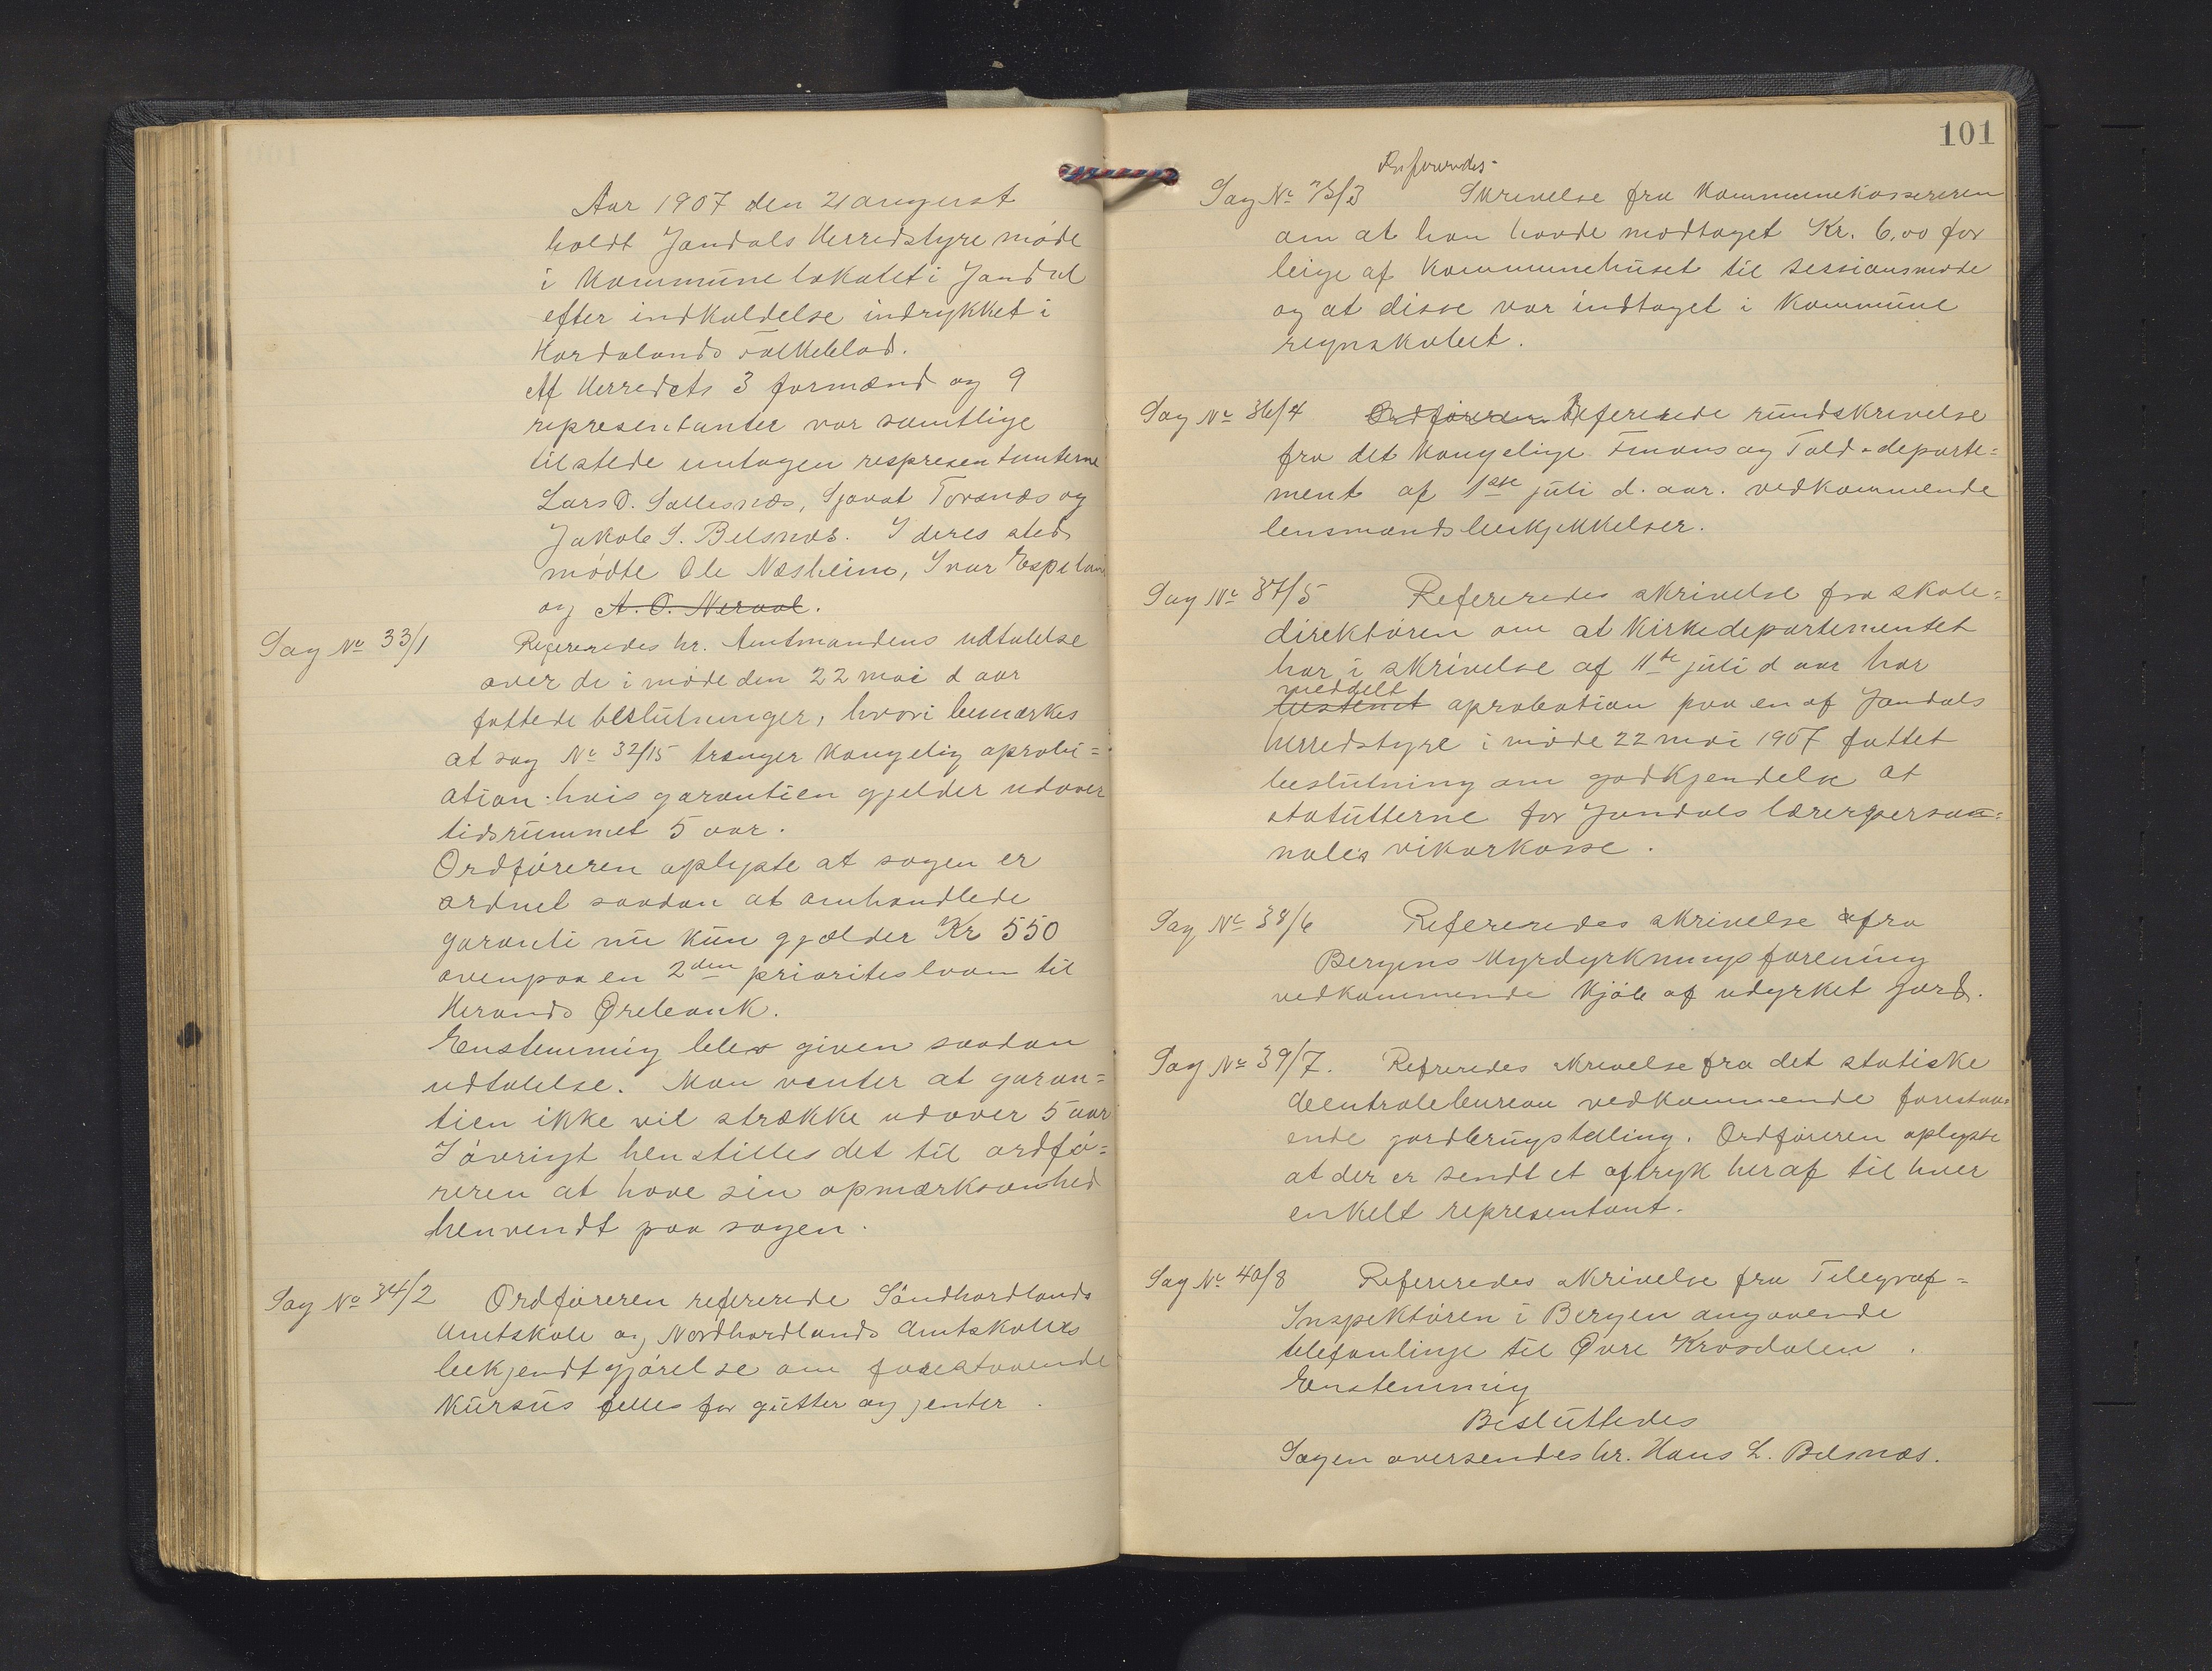 Aar 1907 den 21 august
holdt Jondals Herredstyre møde
i Kommunelokalet i Jondal
efter indkaldelse indrykket i
Hordalands Folkeblad.
Af Herredets 3 formænd og 9
representanter var samtlige
tilstede untagen respresentanterne
Lars O. Sallesnæs, Sjovat Torsnæs og
Jakob S. Belsnæs. I deres sted
mødte Ole Næsheim, Ivar Espeland
og A. O. Neraal.
Sag No 33/1 Refereredes hr. Amtmandens udtalelse
over de i møde den 22 mai d aar
fattede beslutninger, hvori bemærkes
at sag No 32/15 trænger Kongelig aprobi=
ation hvis garantien gjelder udover
tidsrummet 5 aar.
Ordføreren oplyste at sagen er
ordnet saadan at omhandlede
garanti nu kun gjælder Kr 550
ovenpaa en 2den prioritetslaan til
Herands Ørebank.
Enstemmig blev given saadan
udtalelse. Man venter at garan=
tien ikke vil strække udover 5 aar
I øvrigt henstilles det til ordfø=
reren at have sin opmærksomhed
henvendt paa sagen.
Sag No 34/2 Ordføreren refererede Søndhordlands
Amtskole og Nordhordlands Amtskoles
bekjendtgjørelse om forestaaende
Kursus felles for gutter og jenter.
101
Refereredes
Sag No 35/3 Skrivelse fra Kommunekassereren
om at han havde modtaget Kr. 6,00 for
leige af Kommunehuset til sessionsmøde
og at disse var indtaget i Kommune
regnskabet.
Sag No 36/4 Ordføreren Refererede rundskrivelse
fra det Kongelige Finans og Told-departe=
ment af 1ste juli d. aar. vedkommende
lensmandsbeskjikkelser.
Sag No 37/5 Refereredes skrivelse fra skole=
direktøren om at Kirkedepartementet
har i skrivelse af 11te juli d aar har
meddelt
bestemt aprobation paa en af Jondals
herredstyre i møde 22 mai 1907 fattet
beslutning om godkjendelse at
statutterne for Jondals lærerperson=
nales vikarkasse.
Sag No 38/6 Refereredes skrivelse fra
Bergens Myrdyrkningsforening
vedkommende Kjøb af udyrket jord.
Sag No 39/7. Refereredes skrivelse fra det statiske
Centralebureau vedkommende forestaa=
ende jordbrugstælling. Ordføreren oplyste
at der er sendt et aftryk heraf til hver
enkelt representant.
Sag No 40/8 Refereredes skrivelse fra Telegraf=
Inspektøren i Bergen angaaende
telefonlinje til Øvre Krosdalen.
Enstemmig
Besluttedes
Sagen oversendes hr. Hans L. Belsnæs.